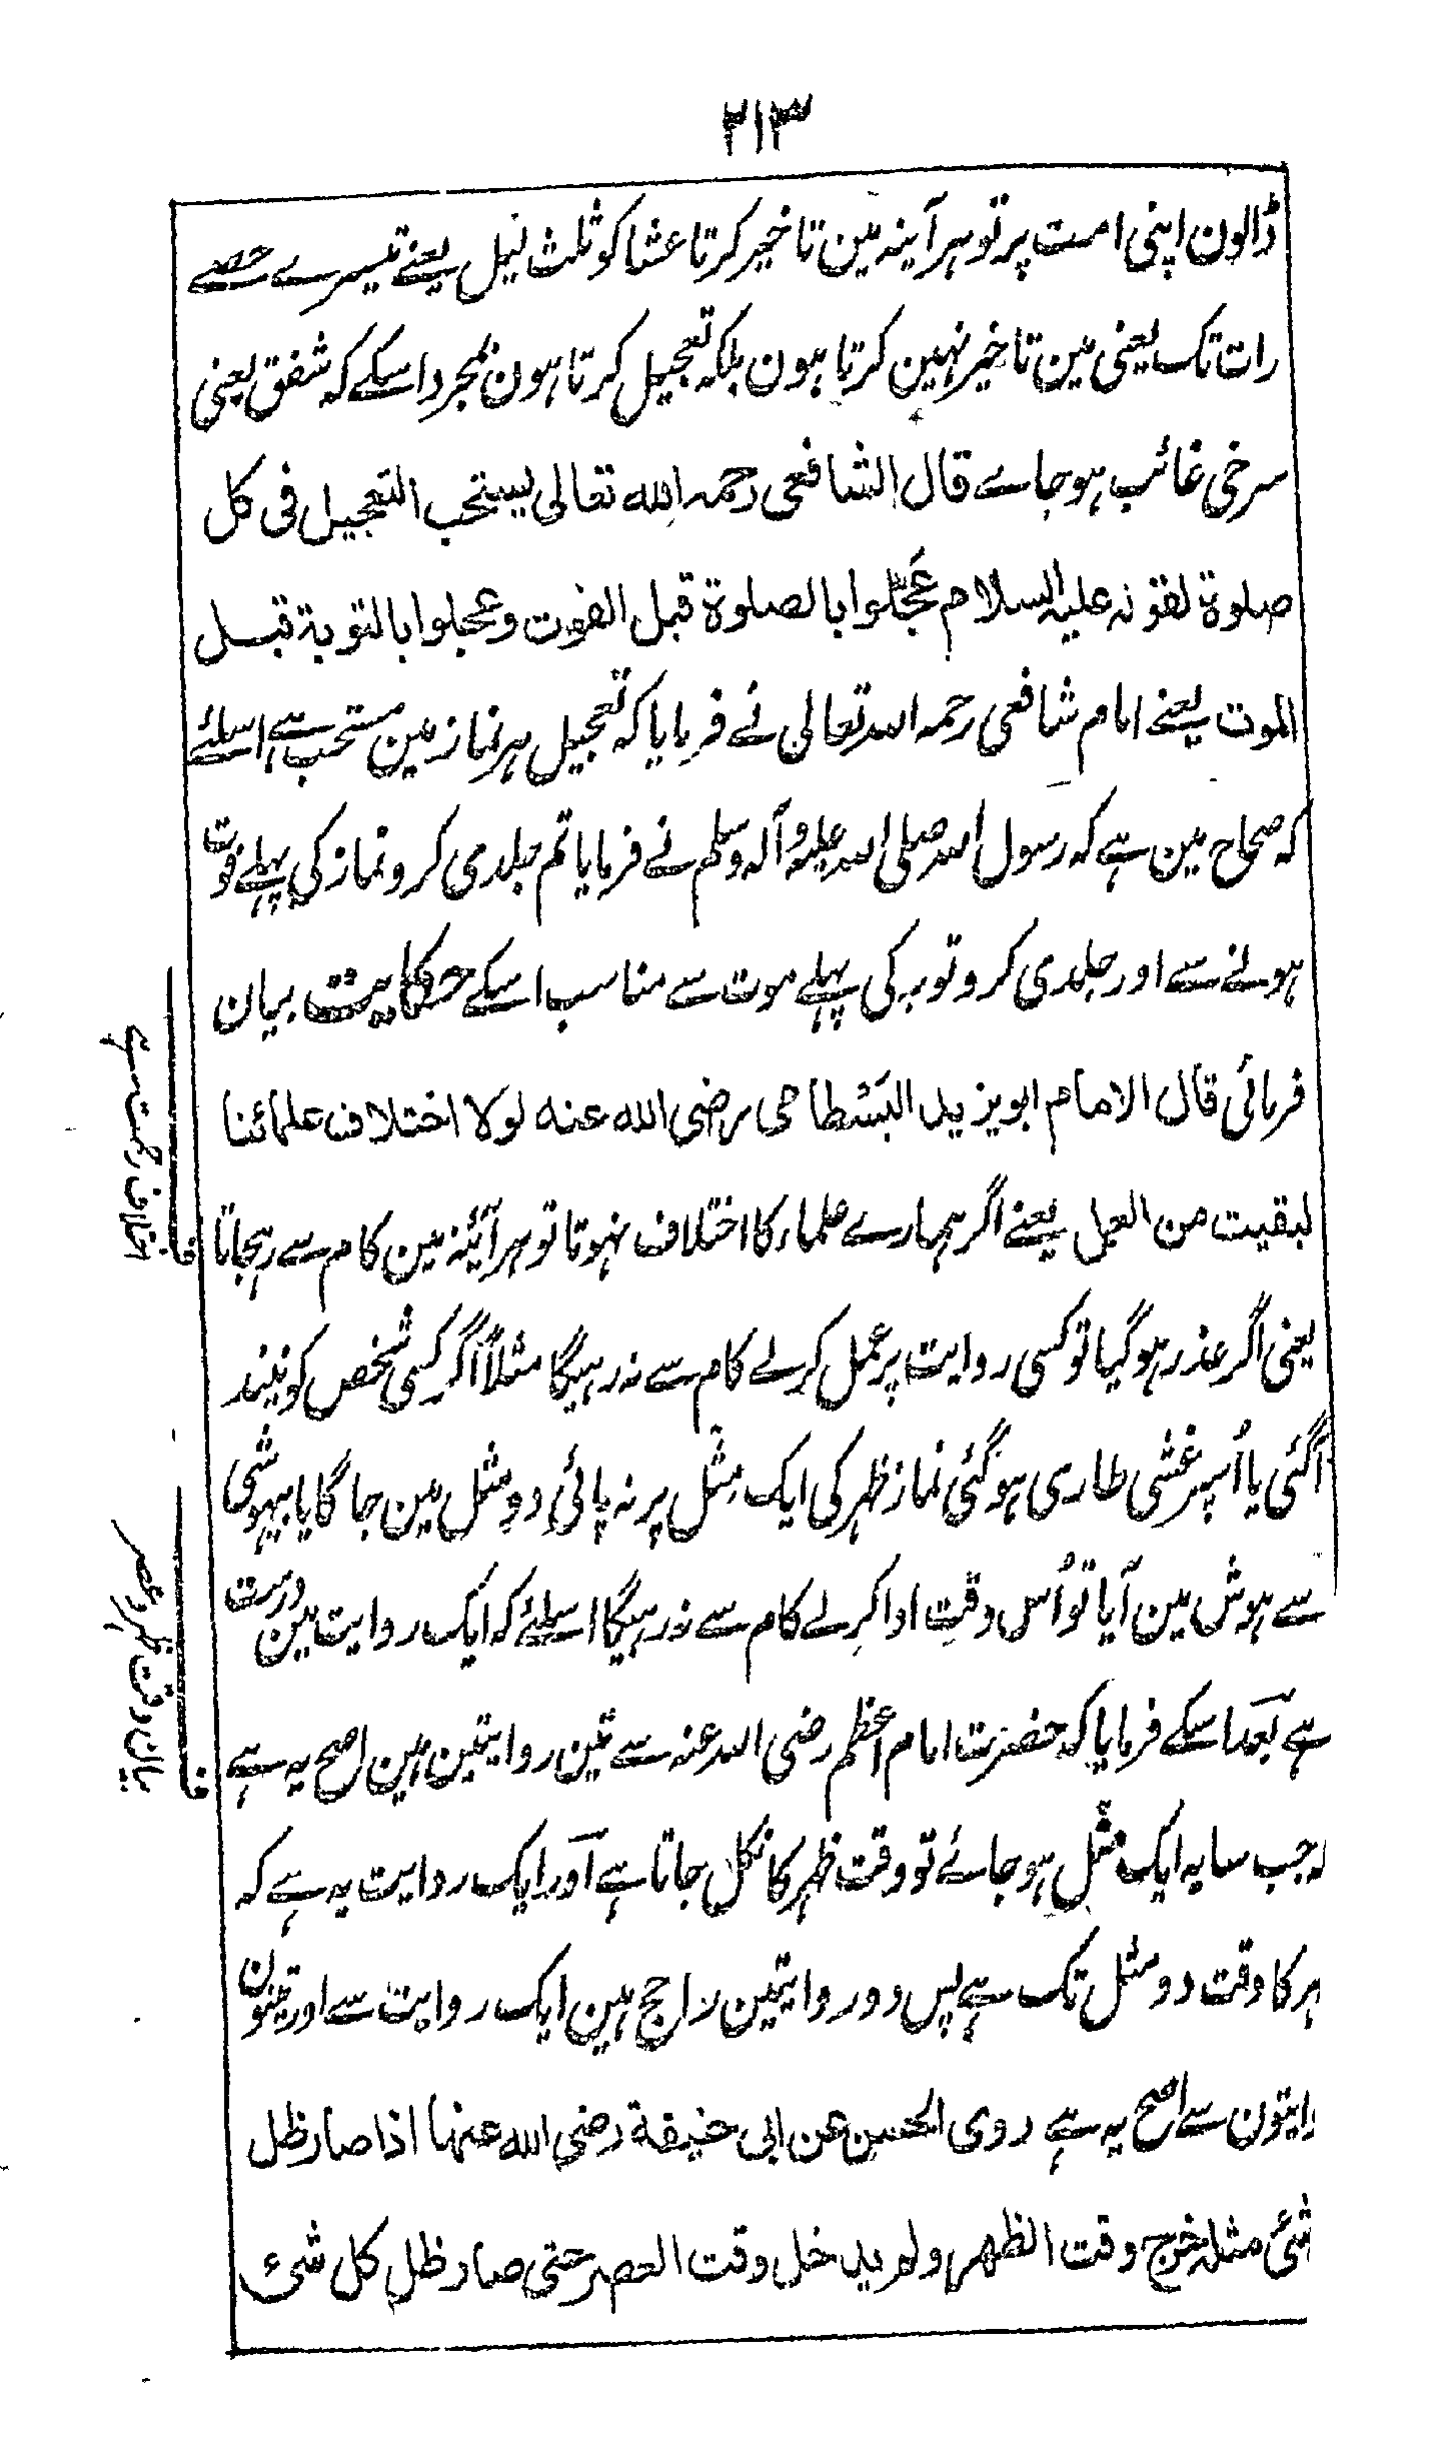 ۲۱۳
ڈالون اپنی امت پر تو ہر آینہ مین تاخیر کرتا عشا کو ثلث لیل یعنے تیسرے حصے
رات تک یعنی مین تاخیر نہین کرتا ہون بلکہ تعجیل کرتا ہون بمجرد اسکے کہ شفق یعنی
سرخی غائب ہو جاے قال الشافعی رحمہ الله تعالی یستحب التعجیل فی کل
صلوة لقوله علیہ السلام عَجِّلوا بالصلوة قبل الفوت وعجلوا بالتوبة قبل
الموت یعنے امام شافعی رحمہ اللہ تعالی نے فرمایا کہ تعجیل ہر نماز مین مستحب ہے اسلئے
کہ صحاح مین ہے کہ رسول اللہ صلی اللہ علیہ وآلہ وسلم نے فرمایا تم جلدی کرو نماز کی پہلے فوت
ہونے سے اور جلدی کرو توبہ کی پہلے موت سے مناسب اسکے حکایت بیان
فرمائی قال الامام ابویزید البَسْطامی رضی الله عنه لولا اختلاف علمائنا
لبقیت من العمل یعنے اگر ہمارے علماء کا اختلاف نہوتا تو ہر آئنہ مین کام سے رہجاتا
یعنی اگر عذر ہو گیا تو کسی روایت پر عمل کرلے کام سے نہ رہیگا مثلاً اگر کسی شخص کو نیند
آگئی یا اُسپر غشی طاری ہو گئی نماز ظہر کی ایک مثل پر نہ پائی دو مثل مین جاگا یا بیہوشی
سے ہوش مین آیا تو اُس وقت ادا کرلے کام سے نہ رہیگا اسلئے کہ ایک روایت مین درست
ہے بعد اسکے فرمایا کہ حضرت امام اعظم رضی اللہ عنہ سے تین روایتین ہین اصح یہ ہے
جب سایہ ایک مثل ہو جائے تو وقت ظہر کا نکل جاتا ہے اور ایک روایت یہ ہے کہ
ہر کا وقت دو مثل تک ہے پس دو روایتین راجح ہین ایک روایت سے اور تینون
رایتون سے اصح یہ ہے روی الحسن عن ابی حنیفة رضی الله عنہما اذا صار ظل
شئ مثله خرج وقت الظهر ولم یدخل وقت العصر حتی صار ظل کل شئ
اختلاف رحمت ہے
بیان وقت ظہر و عصر